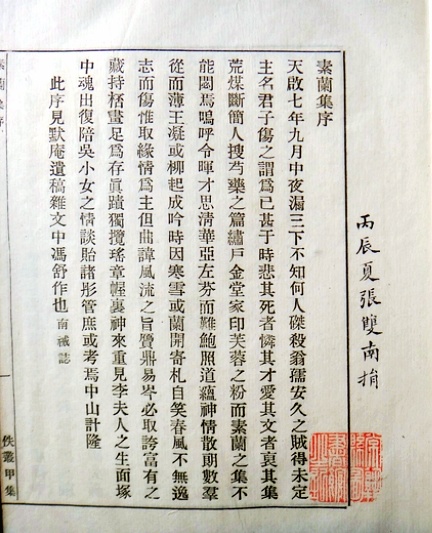 丙辰夏張雙南捐
素蘭集序
天啟七年九月中夜漏三下不知何人磔殺翁孺安久之賊得未定
主名君子傷之謂爲已甚于時悲其死者憐其才愛其文者哀其集
荒煤斷簡人搜芍藥之篇繡戶金堂家印芙蓉之粉而素蘭之集不
能閟焉嗚呼令暉才思清華亞左芬而難鮑照道蘊神情散朗數羣
從而薄王凝或柳起成吟時因寒雪或蘭開寄札自笑春風不無逸
志而傷惟取緣情爲主但曲諱風流之旨贋鼎易岑必取誇富有之
藏持畫足爲存眞蹟獨攬瑤章幄裏神來重見李夫人之生面塚
中魂出復陪吳小女之情談貽諸彤管庶或考焉中山計隆
此序見默庵遺稿雜文中馮舒作也 南誌
素蘭集序
佚叢甲集